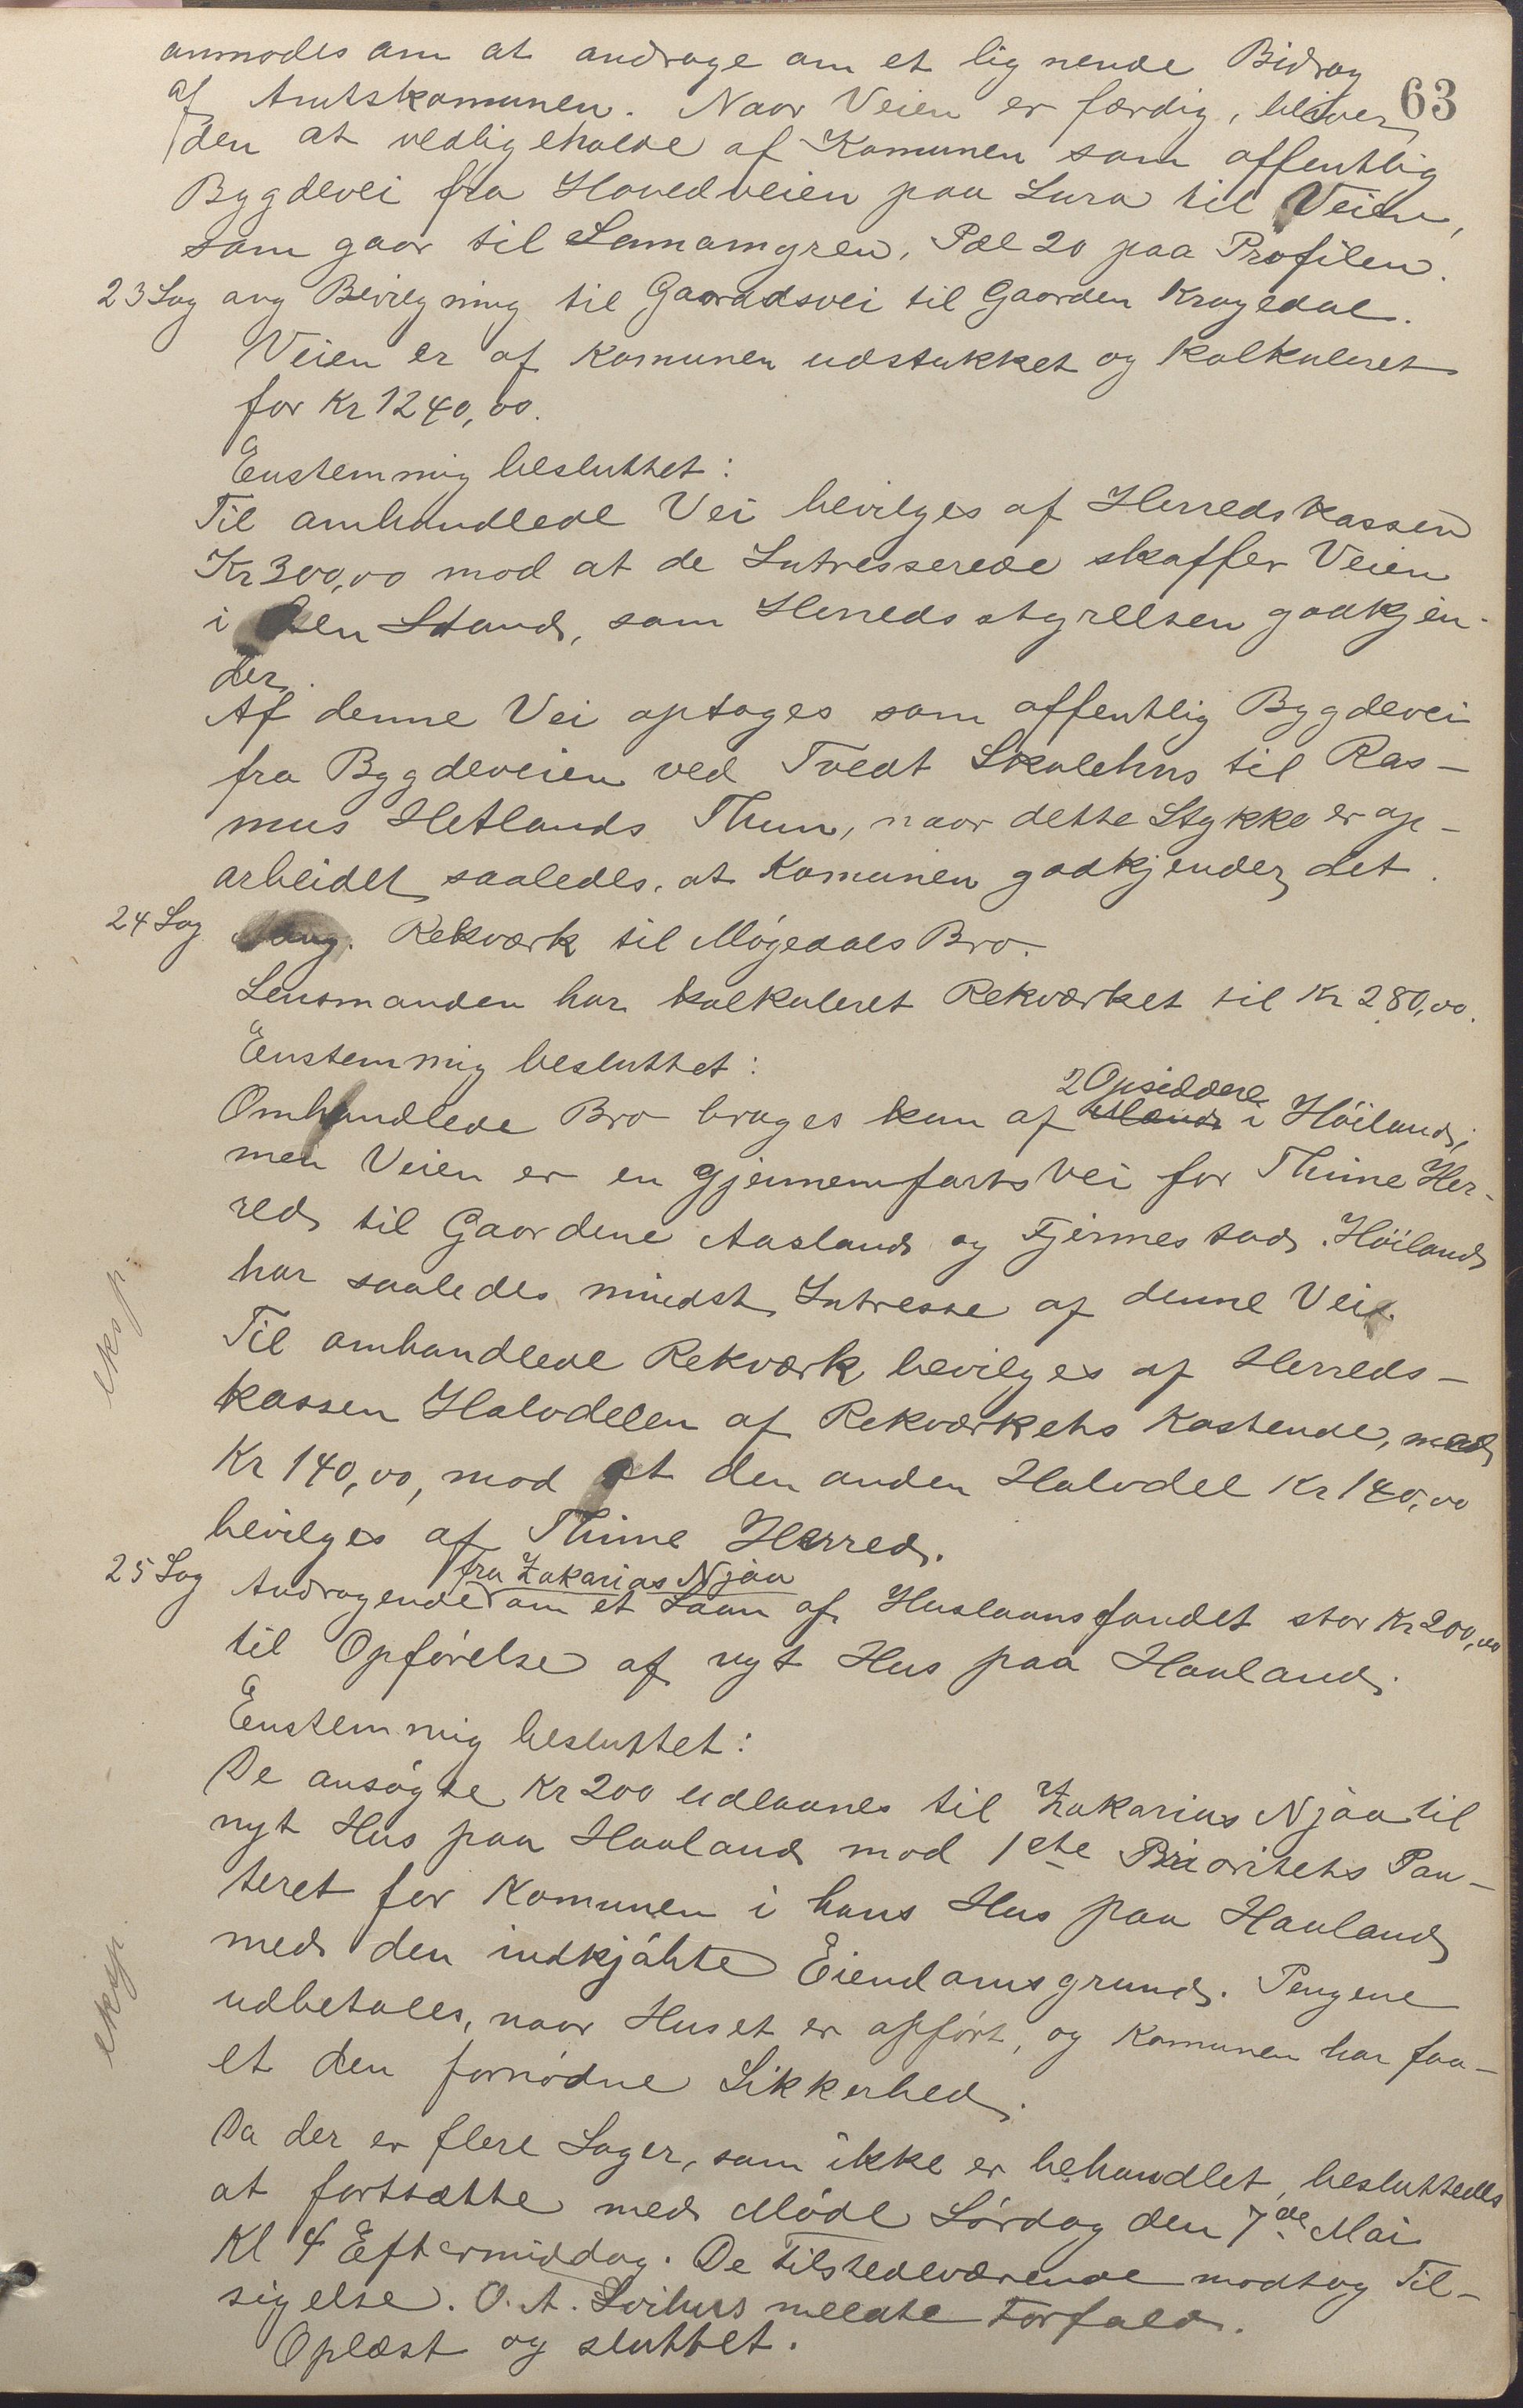 63
anmodes om at andrage om et lignende Bidrag
af Amtskomunen. Naar Veien er færdig, bliver
den at vedligeholde af Komunen som offentlig
Bygdevei fra Hovedveien paa Lura til Veien,
som gaar til Lamamyren, Pæl 20 paa Profilen.
23 Sag ang Bevilgning til Gaardsvei til Gaarden Kragedal.
Veien er af Komunen udstukket og kalkuleret
for Kr 1240,00.
Eenstemmig besluttet:
Til omhandlede Vei bevilges af Herredskassen
Kr 300,00 mod at de Intresserede skaffer Veien
i den Stand, som Herredsstyrelsen godkjen-
der.
Af denne Vei optages som offentlig Bygdevei
fra Bygdeveien ved Tvedt Skolehus til Ras-
mus Hetlands Thun, naar dette Stykke er op-
arbeidet saaledes, at Komunen godkjender det.
24 Sag Ang. Rekværk til Møgedals Bro.
Lensmanden har kalkuleret Rekværket til Kr 280,00.
Eenstemmig besluttet:
2 Opsiddere
Omhandlede Bro bruges kun af i Høiland,
men Veien er en Gjennemfartsvei for Thime Her-
red til Gaardene Aasland og Fjermestad. Høiland
har saaledes mindst Intresse af denne Vei.
Til omhandlede Rekværk bevilges af Herreds-
kassen Halvdelen af Rekværkets Kostende, med
eksp.
Kr 140,00, mod at den anden Halvdel Kr 140,00
bevilges af Thime Herred.
fra Zakarias Njaa
25 Sag Andragende om et Laan af Huslaansfondet stor Kr 200,00
til Opførelse af nyt Hus paa Haaland.
Eenstemmig besluttet:
De ansøgte Kr 200 udlaanes til Zakarias Njaa til
nyt Hus paa Haaland mod 1ste Prioritets Pan-
teret for Komunen i hans Hus paa Haaland
med den indkjøbte Eiendomsgrund. Pengene
eksp.
udbetales, naar Huset er opført, og Komunen har faa-
et den fornødne Sikkerhed.
Da der er flere Sager, som ikke er behandlet, besluttedes
at fortsætte med Møde Lørdag den 7de Mai
Kl 4 Eftermiddag. De Tilstedeværende modtog Til-
sigelse. O. A. Svihus meldte Forfald.
Oplæst og sluttet.